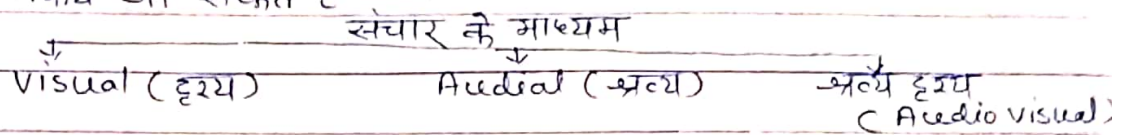 संचार के माध्यम
Visual (दृश्य) Audial (श्रव्य) श्रव्य दृश्य
(Audio visual)